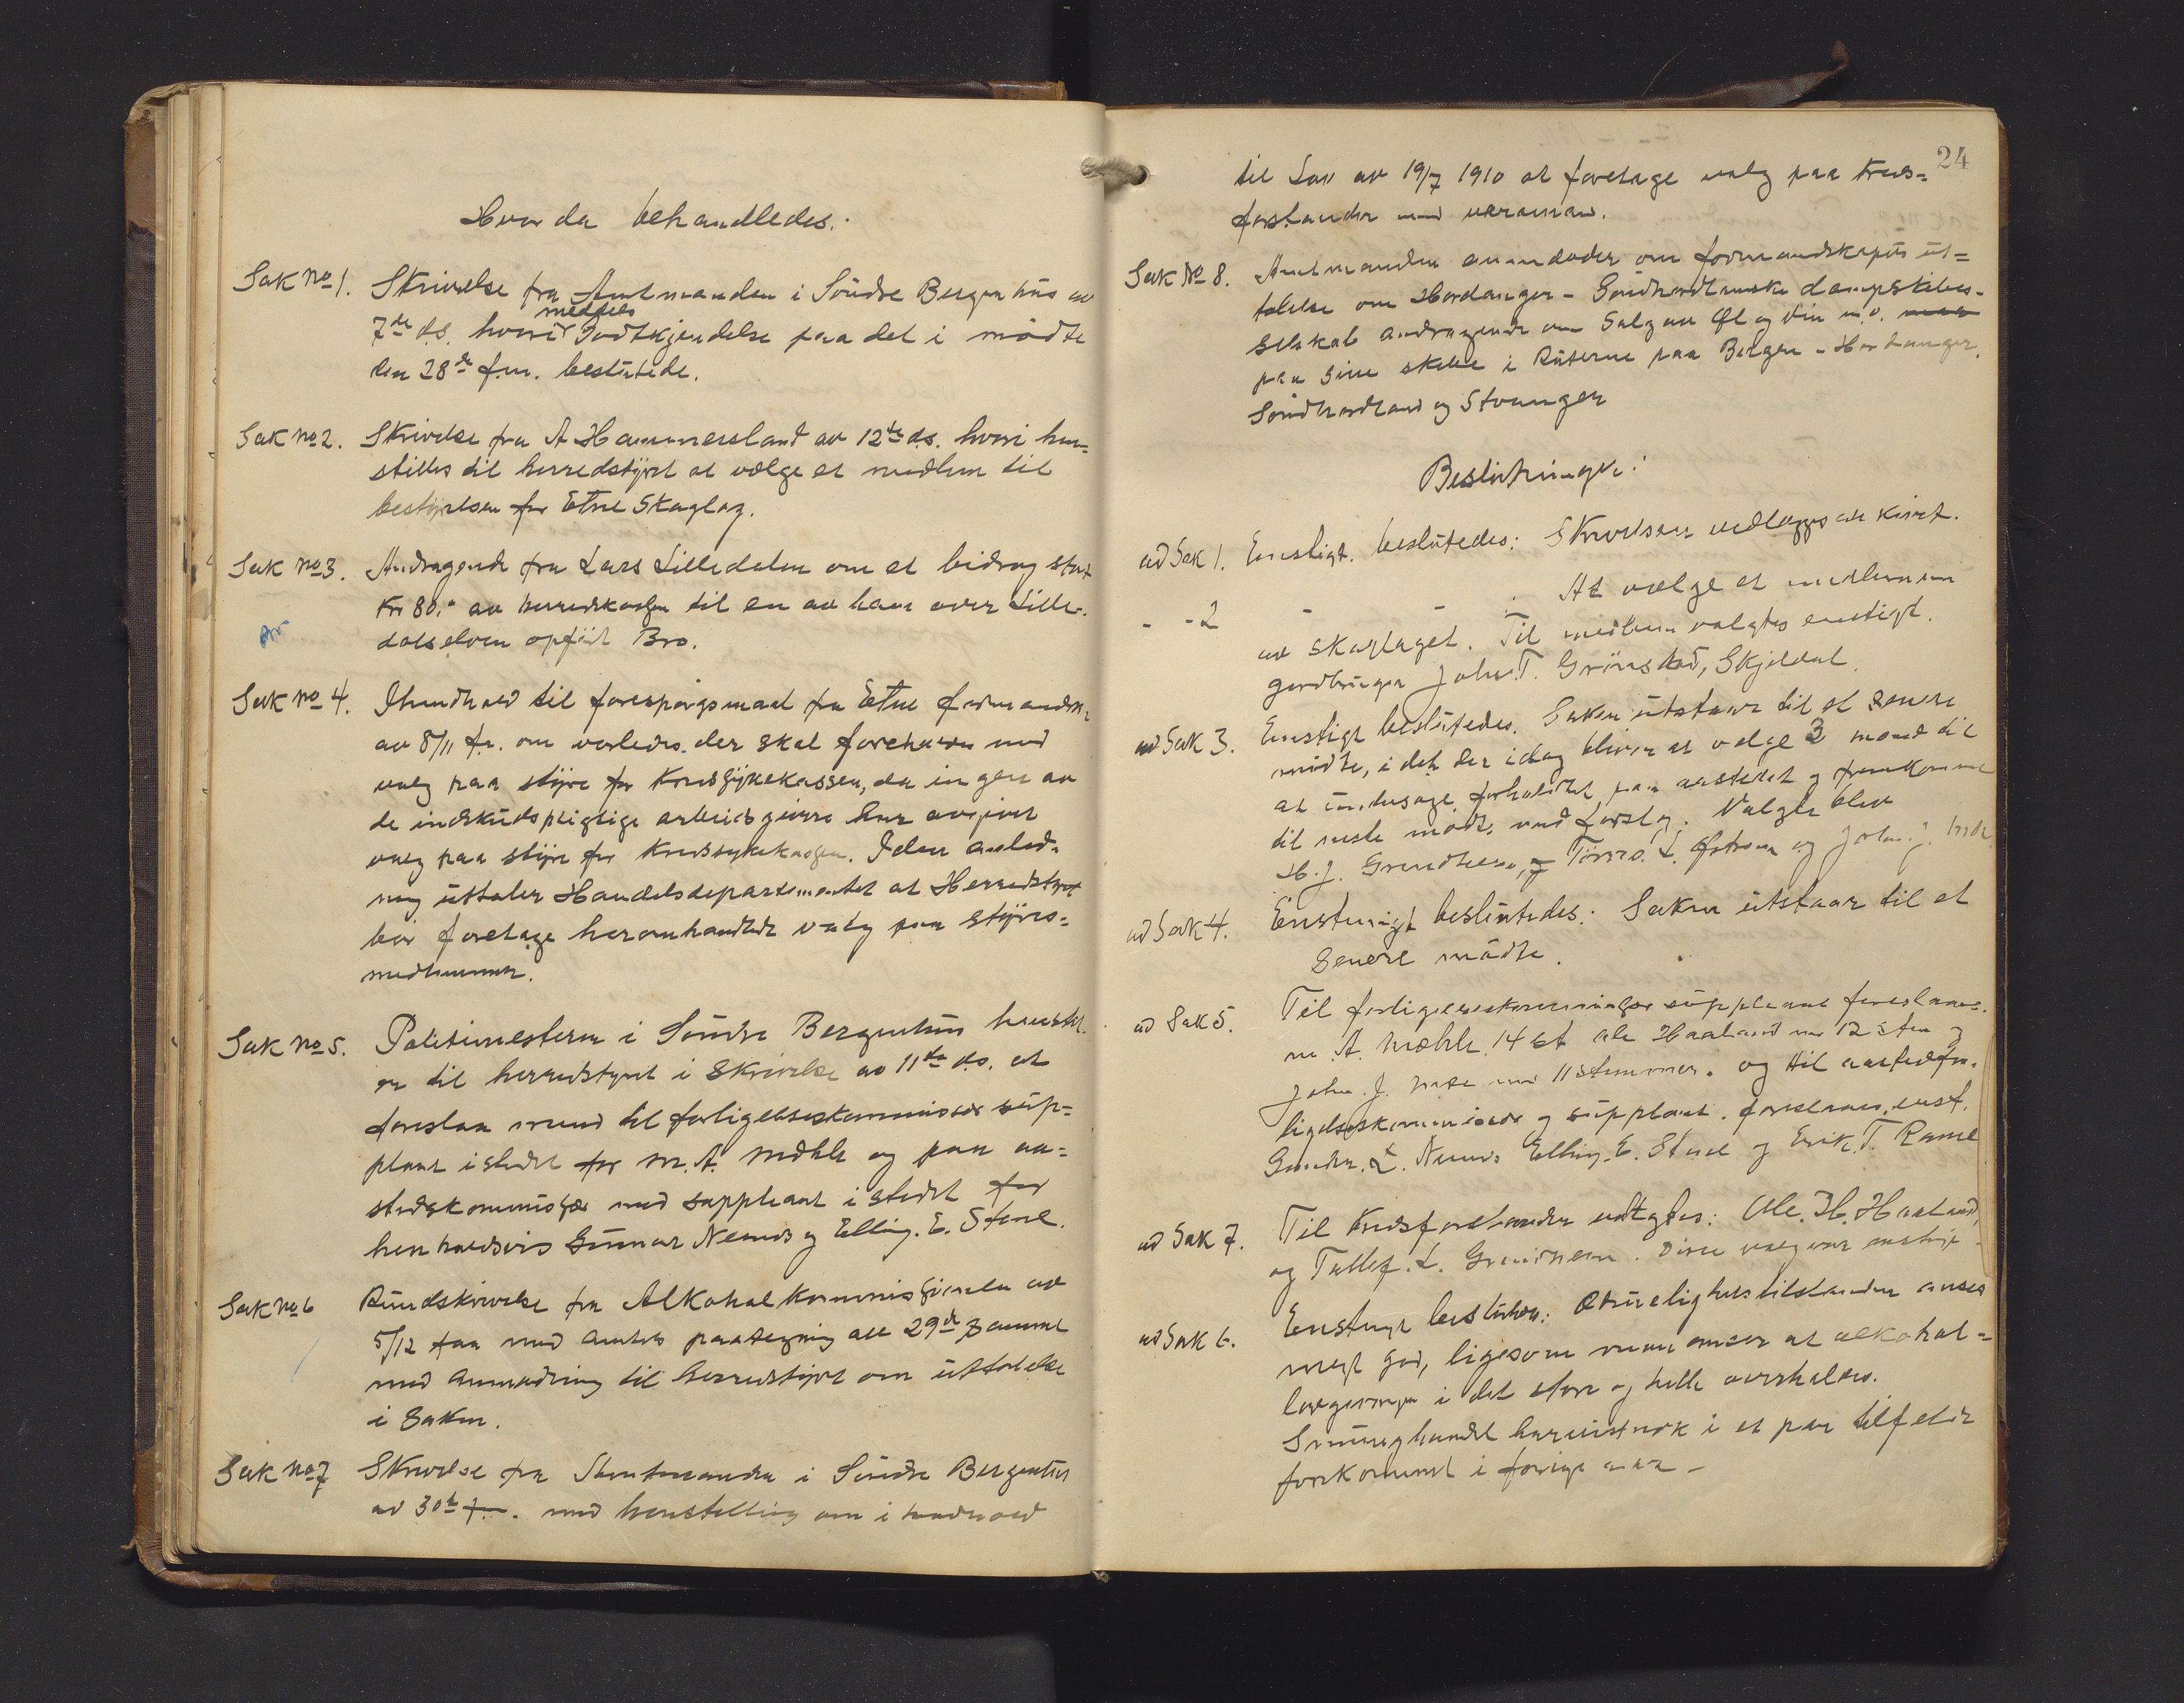 Hvor da behandledes:
Sak No 1. Skrivelse fra Amtmanden i Søndre Bergenhus av
meddeles
7de ds. hvori Godtkjendelse paa det i mødte
den 28de f.m. beslutede.
Sak No 2. Skrivelse fra A Hammersland av 12te ds. hvori hen-
stilles til herredstyret at vælge et medlem til
bestyrelsen for Etne Skoglag.
Sak No 3. Andragende fra Lars Lilledalen om et bidrag stort
Kr 80,- av herredskassen til en av ham over Lille-
dalselven opført Bro.
Sak No 4. I henhold til forespørgsmaal fra Etne formandsk.
av 8/11 f.a. om vorledes der skal foreholdes med
valg paa styre for Kredssykekassen, da ingen av
de indskudspligtige arbeidsgivere har avgivet
valg paa styre for Kredssykekassen. I den anled-
ning uttaler Handelsdepartementet at Herredstyret
bør foretage heromhandlede valg paa styres-
medlemmer.
Sak No 5. Politimesteren i Søndre Bergenhus henstil-
er til herredstyret i Skrivelse av 11te ds. at
foreslaa mænd til forligelseskommissær sup-
pleant istedet for M. A. Mæhle og paa aa-
stedskommissær med suppleant istedet for
henholdsvis Gunnar Nernes og Elling. E. Stene.
Sak No 6 Rundskrivelse fra Alkoholkommissionen av
5/12 f.a. med amtets paategning av 29de samme
med Anmodning til herredstyret om uttalelse
i Saken.
Sak No 7 Skrivelse fra Amtmanden i Søndre Bergenhus
av 30te f.m. med henstilling om i henhold
24
til Lov av 19/7 1910 at foretage valg paa Kreds-
forstander med varamand.
Sak No 8. Amtmanden anmoder om formandskapets ut-
talelse om Hardanger - Søndhordlanske dampskibs-
selskab andragende om Salg av Øl og Vin m.v.
paa sine skibe i Ruterne paa Bergen - Hardanger,
Søndhordland og Stavanger
Beslutninger:
ad Sak 1. Enstigt. beslutedes: Skrivelsen vedlægges arkivet.
- - 2 - - . At vælge et medlem
av Skoglaget. Til medlem valgtes enstigt.
gardbruger Johs. T. Grønstad, Skjeldal.
ad Sak 3. Enstigt beslutedes. Saken utstaar til et senere
mødte, i det der idag bliver at vælge 3 mænd til
at undersøge forholdet paa aastedet og fremkomme
til neste mødte med forslag. Valgte blev
H. J. Grindheim, Tørres. L. Østrem og Johan. J.
ad Sak 4. Enstemigt beslutedes: Saken utstaar til et
senere mødte.
ad Sak 5. Til forligelseskommissær suppleant foreslaaes.
M. A. Mæhle. 14 st Ole Haaland med 12 stem og
Johan. J. med 11 stemmer. og til aastedsfor-
ligelseskommissær og suppleant. foreslaaes. enst.
Gunder. L. Nernes Elling. E. Stene og Erik. T. Rame
ad Sak 7. Til Kredsforstander valgtes: Ole. H. Haaland,
og Tollef. L. Grindheim. Disse valg var enstige.
ad Sak 6. Enstemigt besluttes: Ædruelighetstilstanden anses
meget god, ligesom man anser at alkohol-
lovgivningen i det store og hele overholdes.
Smughandel har vistnok i et par tilfelde
forekommet i forrige aar -